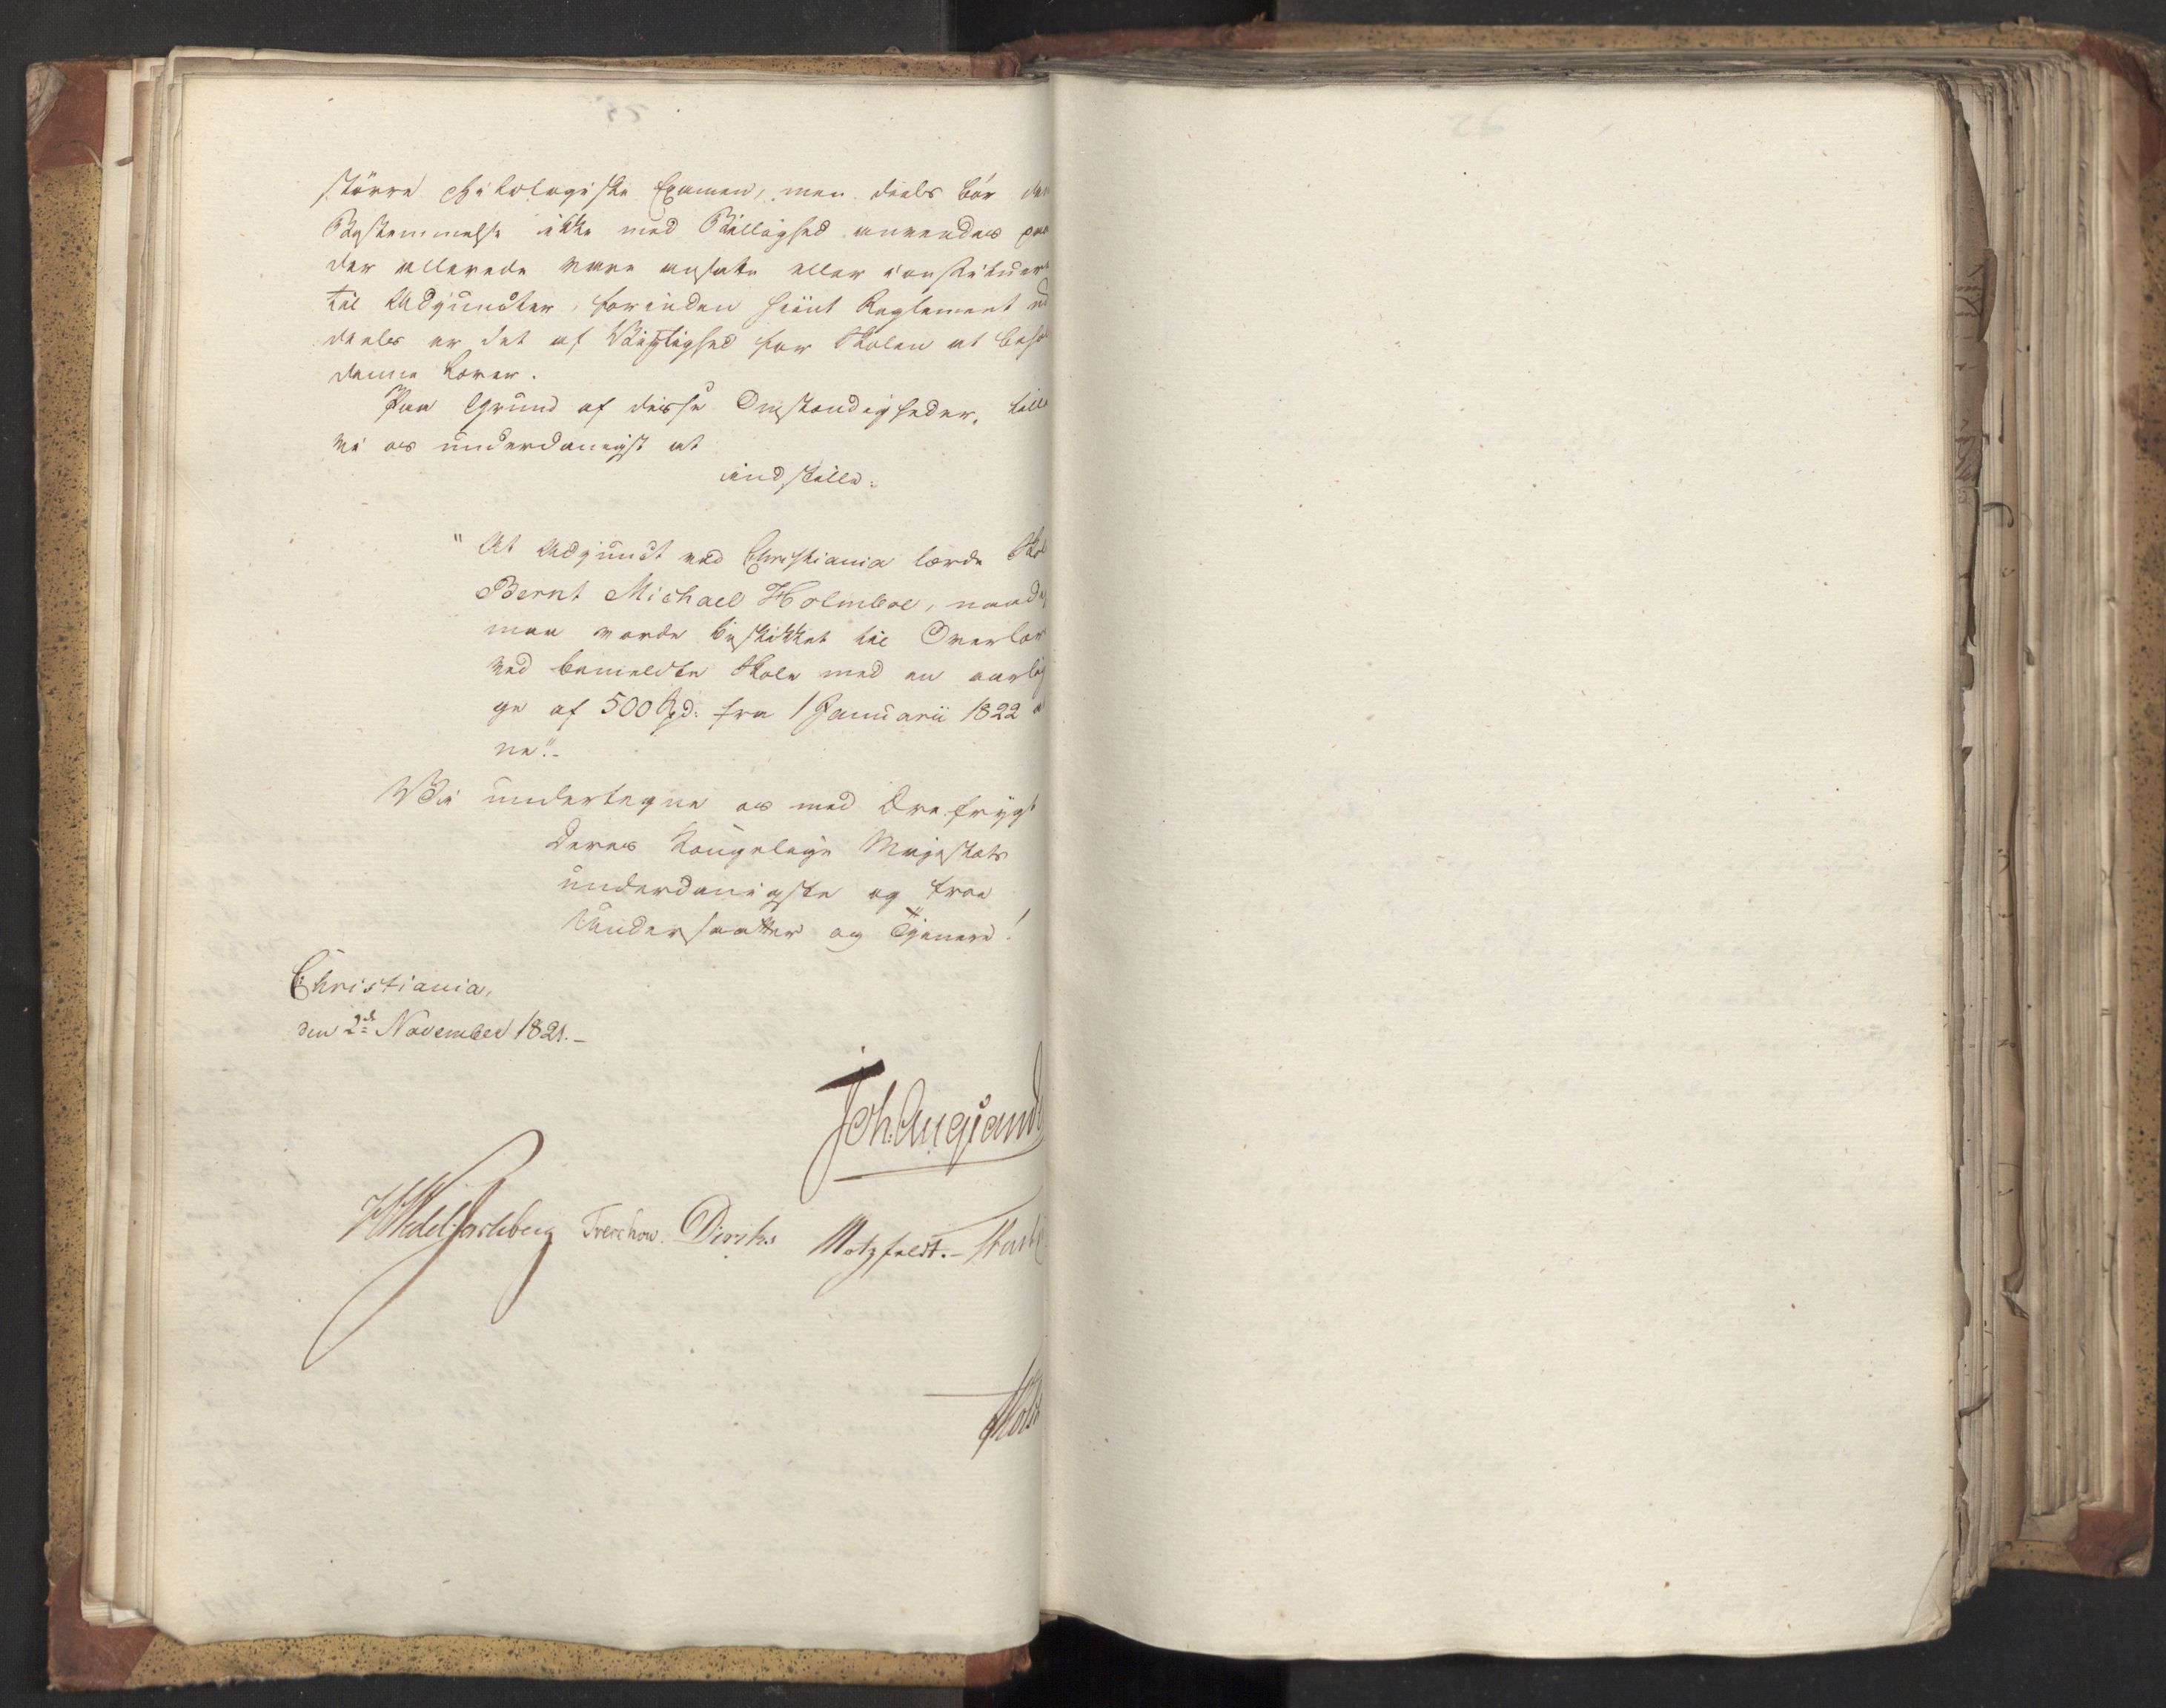 större philologiske Examen, men deels bör den
Bestemmelse ikke med Billighed anvendes paa
der allerede vare ansatte eller constituer
til Adjuncter, forinden hiint Reglement ud
deels er det af Vigtighed for Skolen at beho
denne Lærer.
Paa Grund af disse Omstændigheder, till
vi os underdanigst at
indstille:
"At Adjunct ved Christiania lærde Skol
Bernt Michael Holmboe, naadig
maa vorde beskikket til Overlær
ved bemeldte Skole med en aarlig
ge af 500 Spd: fra 1 Januarii 1822 a
ne".-
Vi undertegne os med Ærefrygt
Deres Kongelige Majestæts
underdanigste og troe
Undersaatter og Tjenere!
Christiania,
den 2d November 1821.-
Joh. Aug. Sand
HWedel Jarlsberg Treschow. Diriks Motzfeldt.-